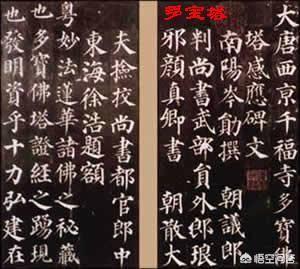 多宝塔
大唐西京千福寺多寶佛
塔感應碑文
南陽岑勛撰 朝議郎
判尚書武部員外郎琅
邪顏真卿書 朝散大
夫撿校尚書都官郎中
東海徐浩題額
粵妙法蓮華諸佛之秘藏
也多寶佛塔證經之踴現
也發明資乎十力弘建在
悟空问答